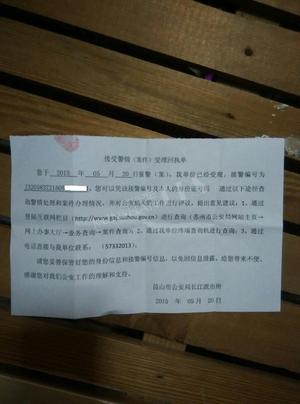 接受警情（案件）受理回执单
您于 2015 年 05 月 20日报警（案），我单位已经受理，接警编号为
，您可以凭该接警编号及本人的身份证号码 通过以下途径查
询警情处理和案件办理情况，并对公安机关的工作进行评议，提出意见建议：1、通过
登陆互联网栏目(http://www.gaj.suzhou.gov.cn)进行查询（苏州市公安局网站主页→
网上办事大厅→业务查询→案件查询）；2、通过我单位库端查询机进行查询；3、通过
电话直接与我单位联系：（57332013）。
请您妥善保管好您的身份信息和接警编号信息，以免因信息泄露，给您带来不便。
感谢您对我们公安工作的理解和支持。
昆山市公安局长江派出所
2015 年 05月 20日